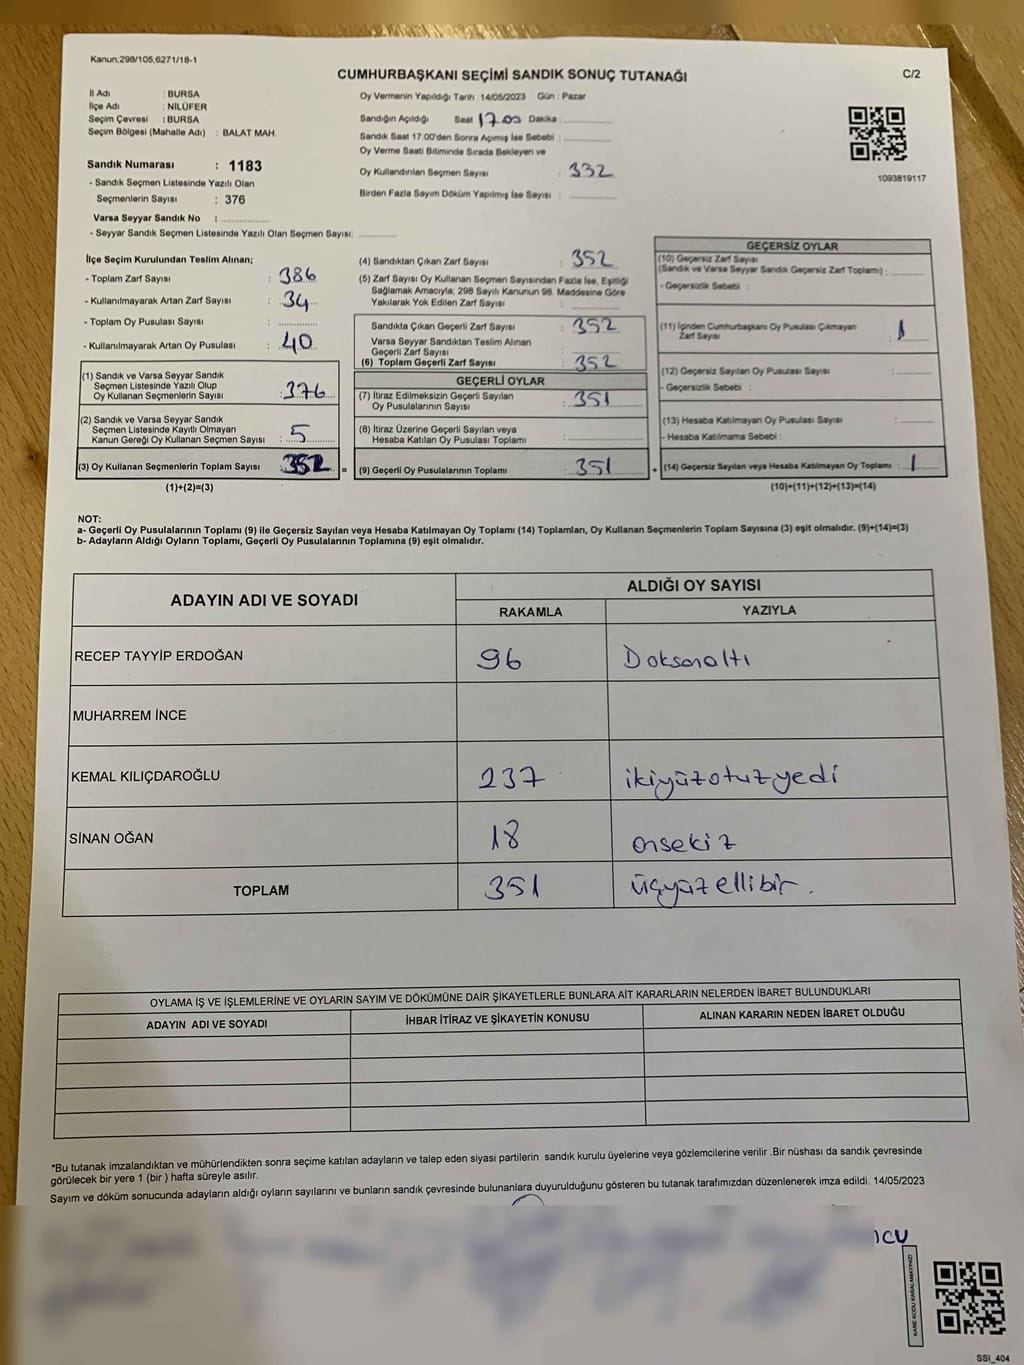 Kanun;298/105,6271/18-1
CUMHURBAŞKANI SEÇİMİ SANDIK SONUÇ TUTANAĞI
C/2
İl Adı : BURSA
İlçe Adı : NİLÜFER
Seçim Çevresi : BURSA
Seçim Bölgesi (Mahalle Adı) : BALAT MAH.
Sandık Numarası : 1183
- Sandık Seçmen Listesinde Yazılı Olan
Seçmenlerin Sayısı : 376
Varsa Seyyar Sandık No : ....................
- Seyyar Sandık Seçmen Listesinde Yazılı Olan Seçmen Sayısı: ............
Oy Vermenin Yapıldığı Tarih :14/05/2023 Gün : Pazar
Sandığın Açıldığı Saat 17.00 Dakika : ....................
Sandık Saat 17:00'den Sonra Açılmış İse Sebebi : ....................
Oy Verme Saati Bitiminde Sırada Bekleyen ve
Oy Kullandırılan Seçmen Sayısı : 332
Birden Fazla Sayım Döküm Yapılmış İse Sayısı : ....................
1093819117
İlçe Seçim Kurulundan Teslim Alınan;
- Toplam Zarf Sayısı : 386
- Kullanılmayarak Artan Zarf Sayısı : 34
- Toplam Oy Pusulası Sayısı : ............
- Kullanılmayarak Artan Oy Pusulası : 40
(1) Sandık ve Varsa Seyyar Sandık
Seçmen Listesinde Yazılı Olup
Oy Kullanan Seçmenlerin Sayısı : 376
(2) Sandık ve Varsa Seyyar Sandık
Seçmen Listesinde Kayıtlı Olmayan
Kanun Gereği Oy Kullanan Seçmen Sayısı : 5
(3) Oy Kullanan Seçmenlerin Toplam Sayısı : 352 =
(1)+(2)=(3)
(4) Sandıktan Çıkan Zarf Sayısı : 352
(5) Zarf Sayısı Oy Kullanan Seçmen Sayısından Fazla İse, Eşitliği
Sağlamak Amacıyla, 298 Sayılı Kanunun 98. Maddesine Göre
Yakılarak Yok Edilen Zarf Sayısı : ............
Sandıkta Çıkan Geçerli Zarf Sayısı : 352
Varsa Seyyar Sandıktan Teslim Alınan
Geçerli Zarf Sayısı : ............
(6) Toplam Geçerli Zarf Sayısı : 352
GEÇERLİ OYLAR
(7) İtiraz Edilmeksizin Geçerli Sayılan
Oy Pusulalarının Sayısı : 351
(8) İtiraz Üzerine Geçerli Sayılan veya
Hesaba Katılan Oy Pusulası Toplamı : ............
(9) Geçerli Oy Pusulalarının Toplamı : 351 +
GEÇERSİZ OYLAR
(10) Geçersiz Zarf Sayısı
(Sandık ve Varsa Seyyar Sandık Geçersiz Zarf Toplamı) : ............
- Geçersizlik Sebebi :
(11) İçinden Cumhurbaşkanı Oy Pusulası Çıkmayan
Zarf Sayısı : 1
(12) Geçersiz Sayılan Oy Pusulası Sayısı : ............
- Geçersizlik Sebebi :
(13) Hesaba Katılmayan Oy Pusulası Sayısı : ............
- Hesaba Katılmama Sebebi :
(14) Geçersiz Sayılan veya Hesaba Katılmayan Oy Toplamı : 1
(10)+(11)+(12)+(13)=(14)
NOT:
a- Geçerli Oy Pusulalarının Toplamı (9) ile Geçersiz Sayılan veya Hesaba Katılmayan Oy Toplamı (14) Toplamları, Oy Kullanan Seçmenlerin Toplam Sayısına (3) eşit olmalıdır. (9)+(14)=(3)
b- Adayların Aldığı Oyların Toplamı, Geçerli Oy Pusulalarının Toplamına (9) eşit olmalıdır.
ADAYIN ADI VE SOYADI
ALDIĞI OY SAYISI
RAKAMLA YAZIYLA
RECEP TAYYİP ERDOĞAN 96 Doksanaltı
MUHARREM İNCE
KEMAL KILIÇDAROĞLU 237 ikiyüzotuzyedi
SİNAN OĞAN 18 onsekiz
TOPLAM 351 üçyüzellibir.
OYLAMA İŞ VE İŞLEMLERİNE VE OYLARIN SAYIM VE DÖKÜMÜNE DAİR ŞİKAYETLERLE BUNLARA AİT KARARLARIN NELERDEN İBARET BULUNDUKLARI
ADAYIN ADI VE SOYADI İHBAR İTİRAZ VE ŞİKAYETİN KONUSU ALINAN KARARIN NEDEN İBARET OLDUĞU
*Bu tutanak imzalandıktan ve mühürlendikten sonra seçime katılan adayların ve talep eden siyasi partilerin sandık kurulu üyelerine veya gözlemcilerine verilir .Bir nüshası da sandık çevresinde
görülecek bir yere 1 (bir ) hafta süreyle asılır.
Sayım ve döküm sonucunda adayların aldığı oyların sayılarını ve bunların sandık çevresinde bulunanlara duyurulduğunu gösteren bu tutanak tarafımızdan düzenlenerek imza edildi. 14/05/2023
CU
KARE KODU KARALAMAYINIZ!
SSI_404